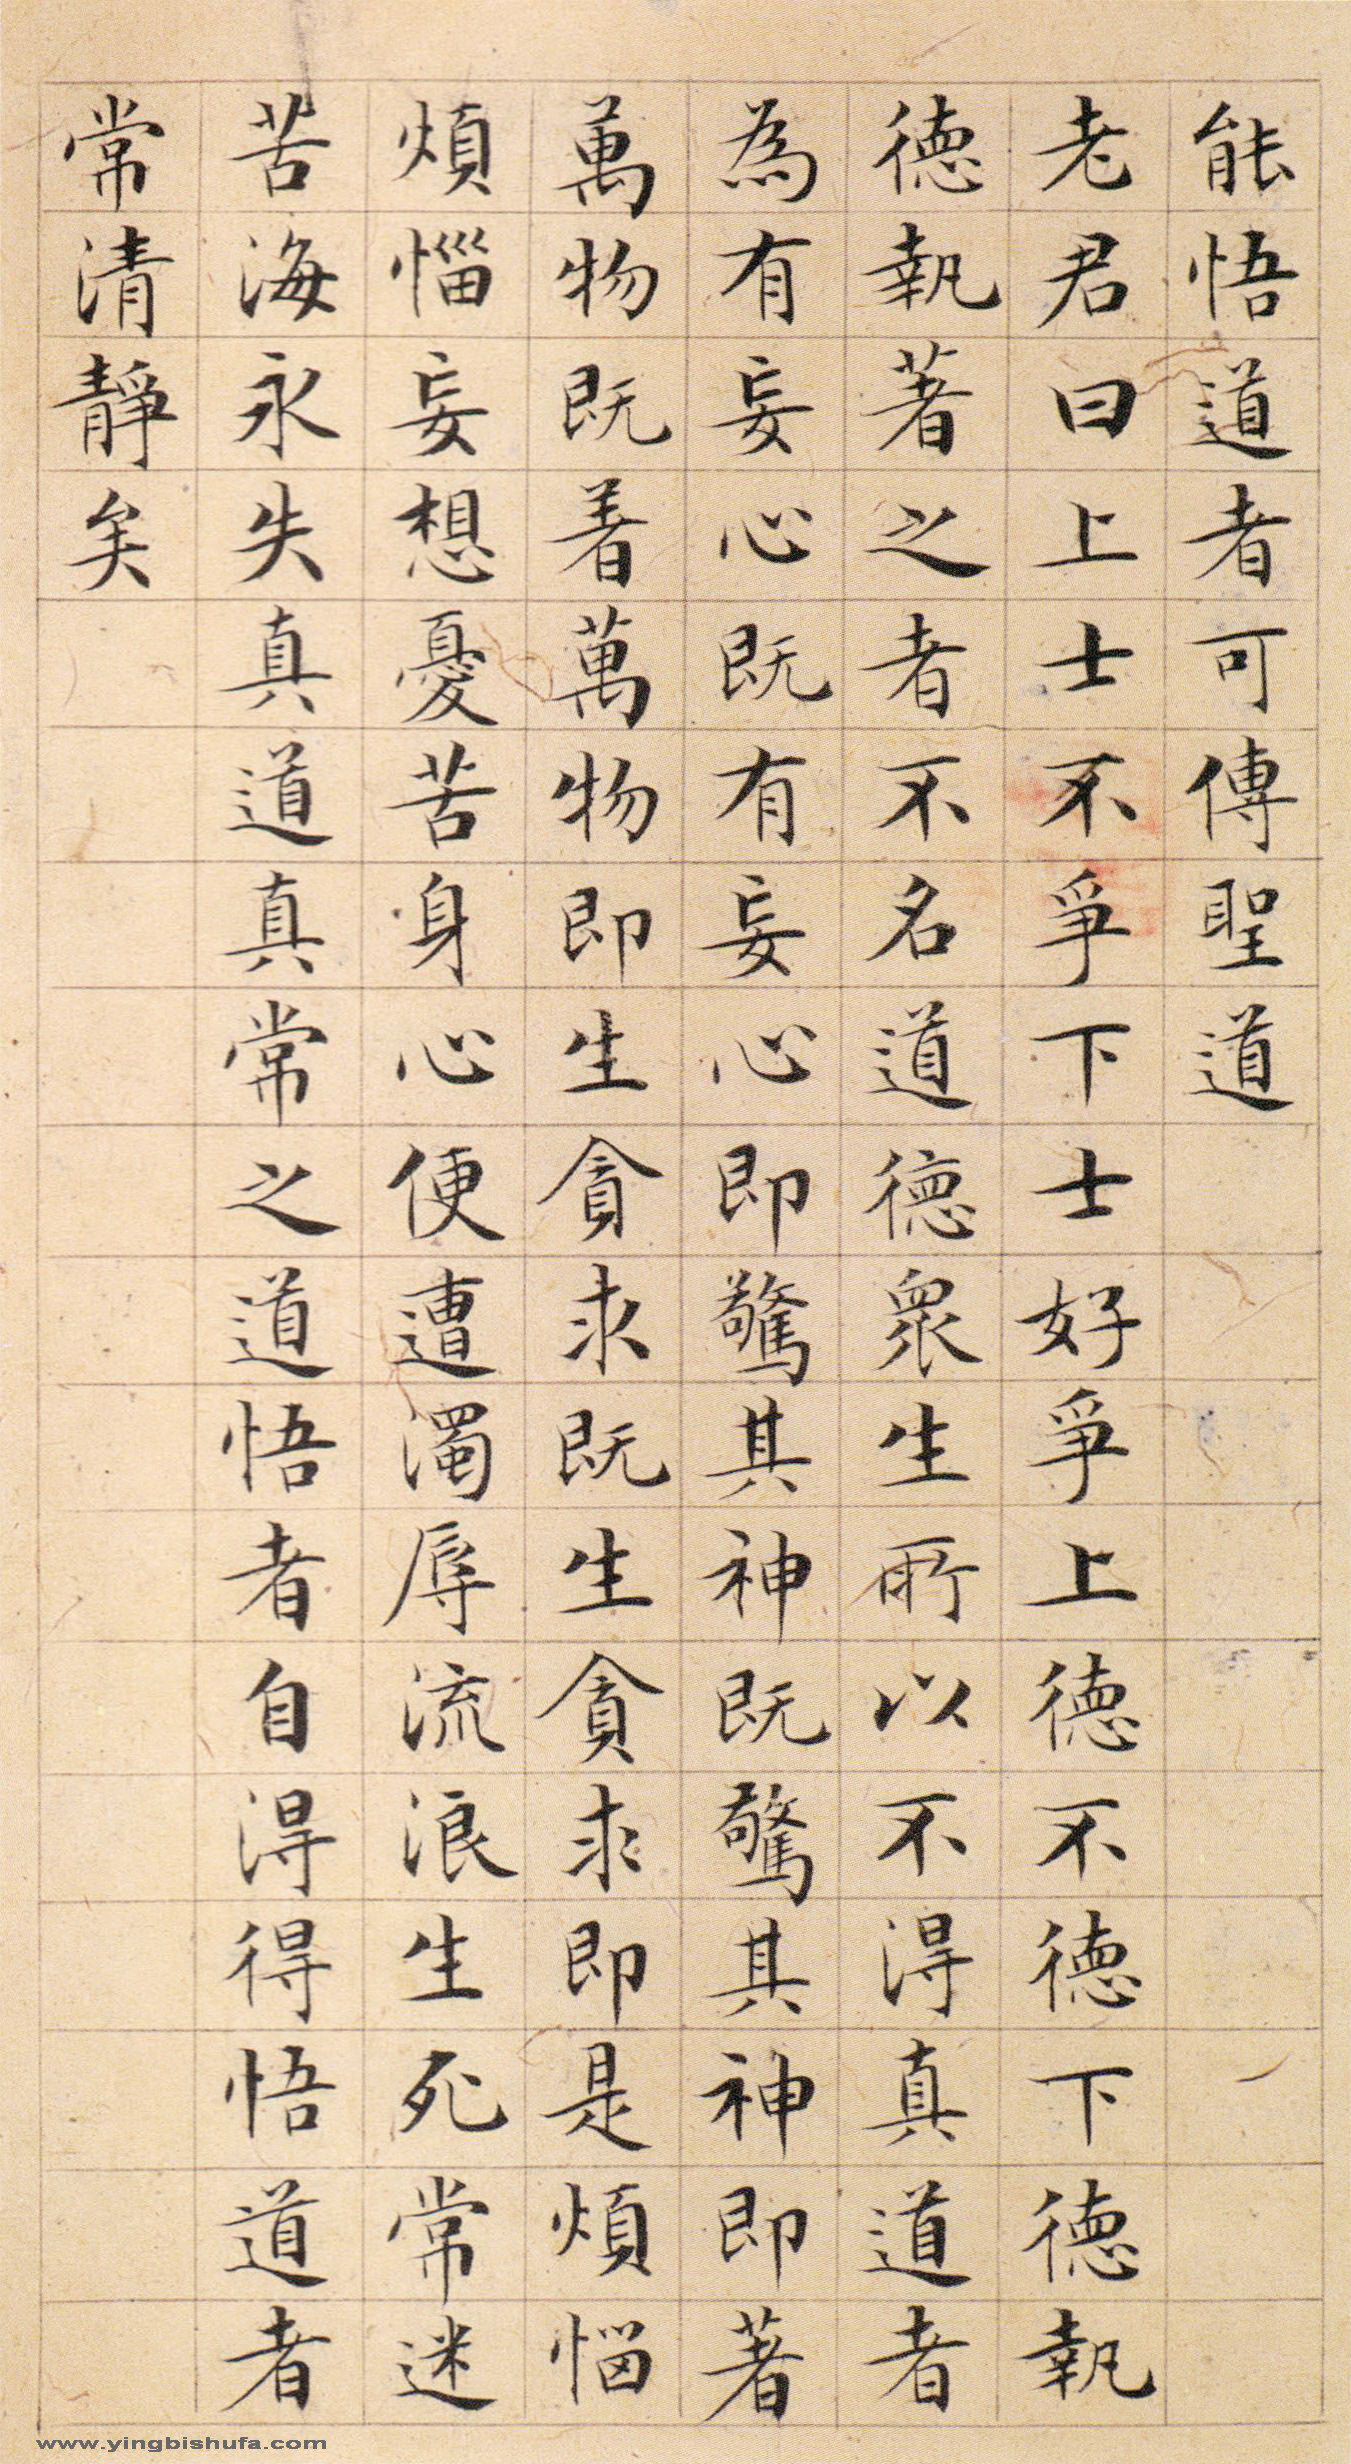 能悟道者可傳聖道
老君曰上士不爭下士好爭上德不德下德執
德執著之者不名道德眾生所以不得真道者
為有妄心既有妄心即驚其神既驚其神即著
萬物既着萬物即生貪求既生貪求即是煩惱
煩惱妄想憂苦身心便遭濁辱流浪生死常迷
苦海永失真道真常之道悟者自得得悟道者
常清靜矣
www.yingbishufa.com